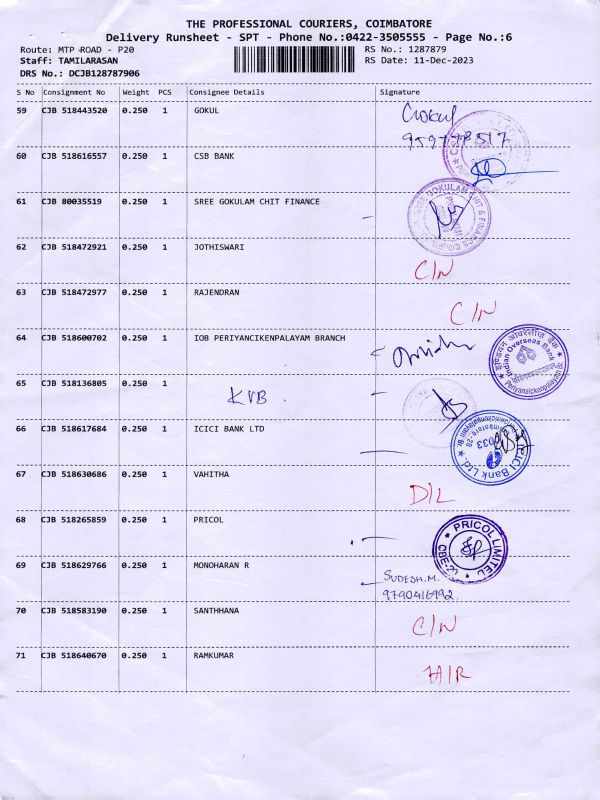 THE PROFESSIONAL COURIERS, COIMBATORE
Delivery Runsheet - SPT - Phone No.:0422-3505555 - Page No.:6
Route: MTP ROAD - P20
RS No.: 1287879
Staff: TAMILARASAN
RS Date: 11-Dec-2023
DRS No.: DCJB128787906
S No Consignment No Weight PCS Consignee Details Signature
59 CJB 518443520 0.250 1 GOKUL Gokul
60 CJB 518616557 0.250 1 CSB BANK
61 CJB 80035519 0.250 1 SREE GOKULAM CHIT FINANCE
GOKULAM CHIT & FINANCE
62 CJB 518472921 0.250 1 JOTHISWARI C/N
63 CJB 518472977 0.250 1 RAJENDRAN C/N
64 CJB 518600702 0.250 1 IOB PERIYANCIKENPALAYAM BRANCH
इण्डियन ओवरसीज़ बैंक
Indian Overseas Bank
Periyanaickenpalayam Br.
65 CJB 518136805 0.250 1 KVB.
66 CJB 518617684 0.250 1 ICICI BANK LTD
ICICI Bank Ltd.
67 CJB 518630686 0.250 1 VAHITHA D/L
68 CJB 518265859 0.250 1 PRICOL
PRICOL LIMITED
CBE-20
69 CJB 518629766 0.250 1 MONOHARAN R SUDESH.M.
9790416992
70 CJB 518583190 0.250 1 SANTHHANA C/N
71 CJB 518640670 0.250 1 RAMKUMAR